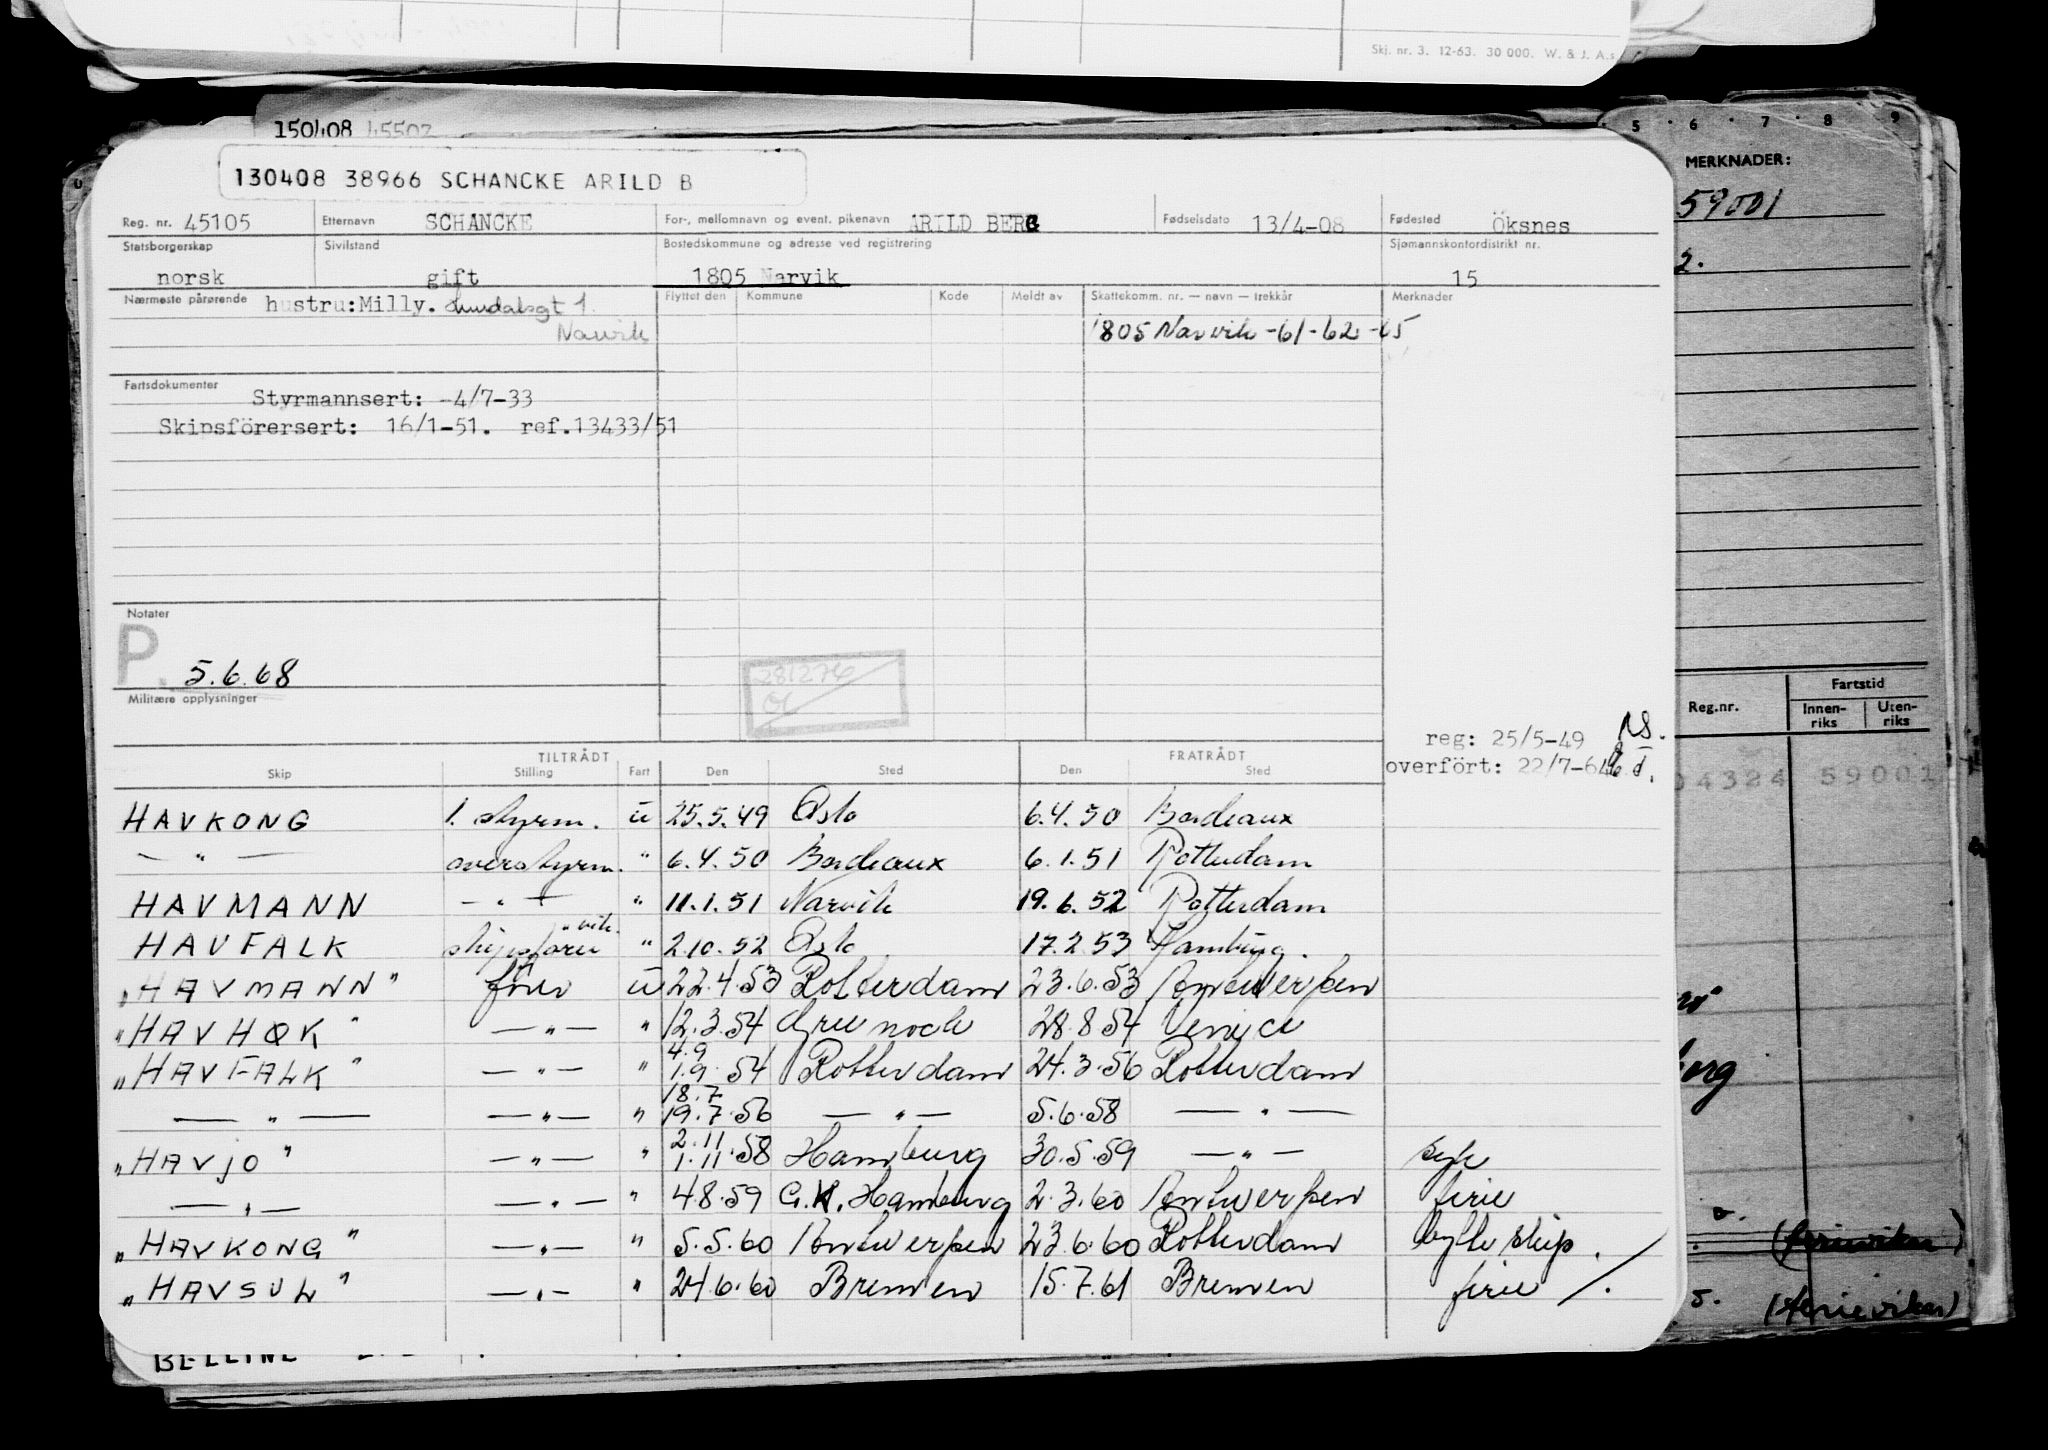 Skj. nr. 3. 12-63. 30 000. W. & J. A.s
150408 45502
5 · 6 · 7 · 8 9
MERKNADER:
59001
2.
130408 38966 SCHANCKE ARILD B
Reg. nr. 45105 Etternavn SCHANCKE For-, mellomnavn og event. pikenavn ARILD BERG Fødselsdato 13/4-08 Fødested Öksnes
Statsborgerskap Sivilstand Bostedskommune og adresse ved registrering Sjømannskontordistrikt nr.
norsk gift 1805 Narvik 15
Nærmeste pårørende hustru:Milly. 1. Flyttet den Kommune Kode Meldt av Skattekomm. nr. — navn — trekkår Merknader
Narvik 1805 Narvik -61-62-65
Fartsdokumenter
Styrmannsert: -4/7-33
Skipsförersert: 16/1-51. ref.13433/51
Notater
P. 5.6.68
281276
Militære opplysninger
Reg.nr. Fartstid
Innen- riks Uten- riks
reg: 25/5-49
overfört: 22/7-64
04324 59001
TILTRÅDT FRATRÅDT
Skip Stilling Fart Den Sted Den Sted
HAVKONG 1. styrm. u 25.5.49 Oslo 6.4.50 Bordeaux
— " — overstyrm. " 6.4.50 Bordeaux 6.1.51 Rotterdam
HAVMANN — " — " 11.1.51 Narvik 19.6.52 Rotterdam
HAVFALK skipsfører vik. " 2.10.52 Oslo 17.2.53 Hamburg.
"HAVMANN" fører u 22.4.53 Rotterdam 23.6.53 Antwerpen
"HAVHØK" — " — " 12.3.54 Greenock 28.8.54 Venice
"HAVFALK" — " — " 4.9 1.9.54 Rotterdam 24.3.56 Rotterdam
— " — — " — " 18.7 19.7.56 — " — 5.6.58 — " —
"HAVJO" — " — " 2.11 1.11.58 Hamburg 30.5.59 — " — syk
— " — — " — " 4.8.59 Hamburg 2.3.60 Antwerpen ferie
"HAVKONG" — " — " 5.5.60 Antwerpen 23.6.60 Rotterdam bytte skip.
"HAVSUL" — " — " 24.6.60 Bremen 15.7.61 Bremen ferie